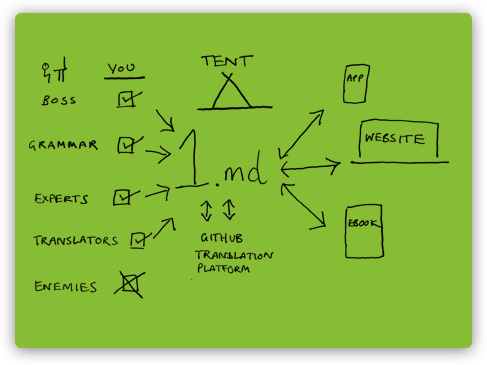 YOU
BOSS
GRAMMAR
EXPERTS
TRANSLATORS
ENEMIES
TENT
1.md
GITHUB
TRANSLATION
PLATFORM
APP
WEBSITE
EBOOK